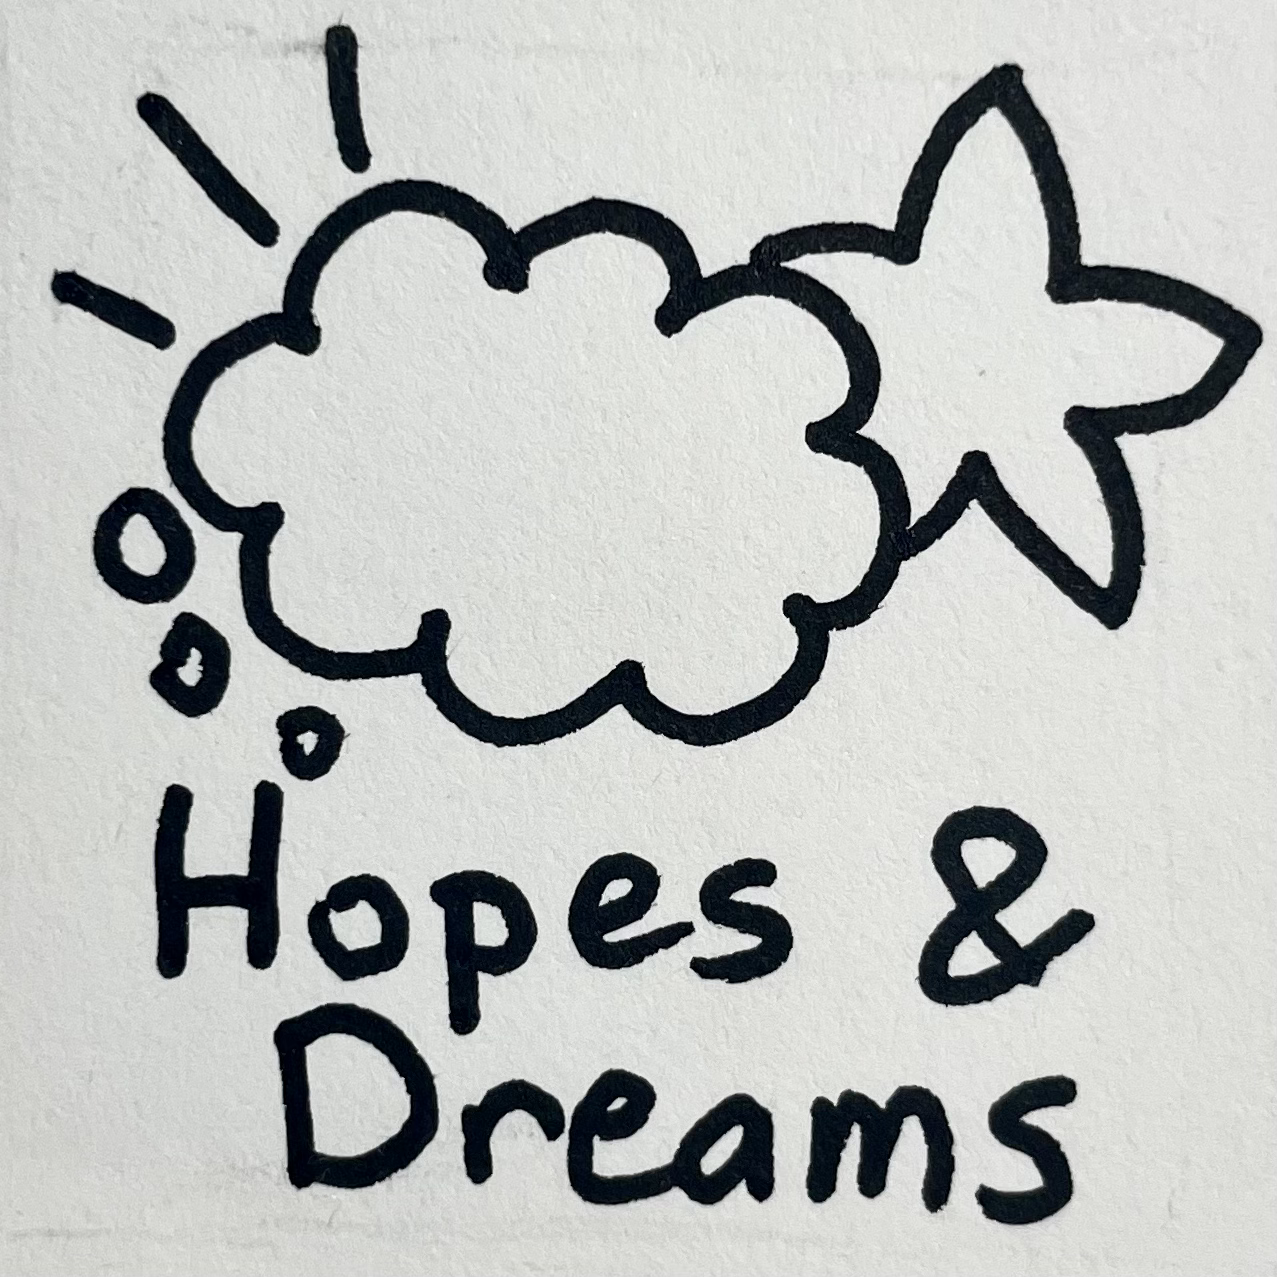 Hopes &
Dreams